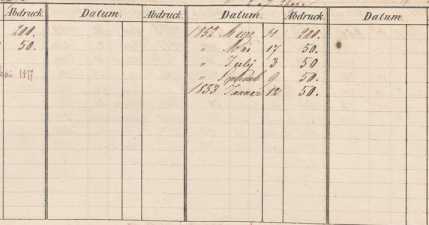 Abdruck. Datum. Abdruck. Datum. Abdruck. Datum.
200. 1852 11 200.
50. " Mai 17 50.
" July 3 50
" 9 50.
1853 Januar 12 50.